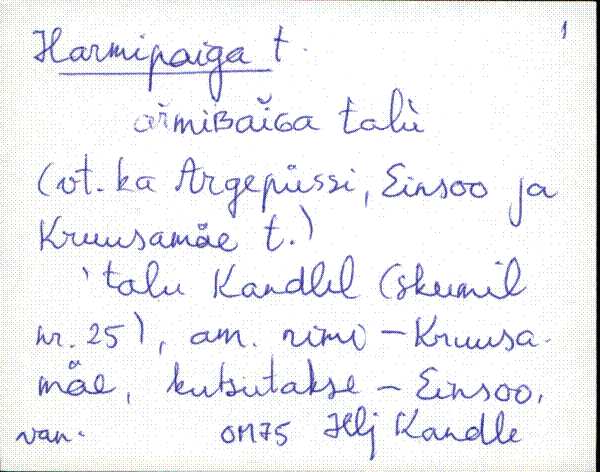 1
Harmipaiga t.
ar̆miʙaĭɢa talù
(vt. ka Argepüssi, Einsoo ja
Kruusamäe t.)
'talu Kandlel (skeemil
nr. 25), am. nimi – Kruusa-
mäe, kutsutakse – Einsoo,
van. KM75 Hlj Kandle